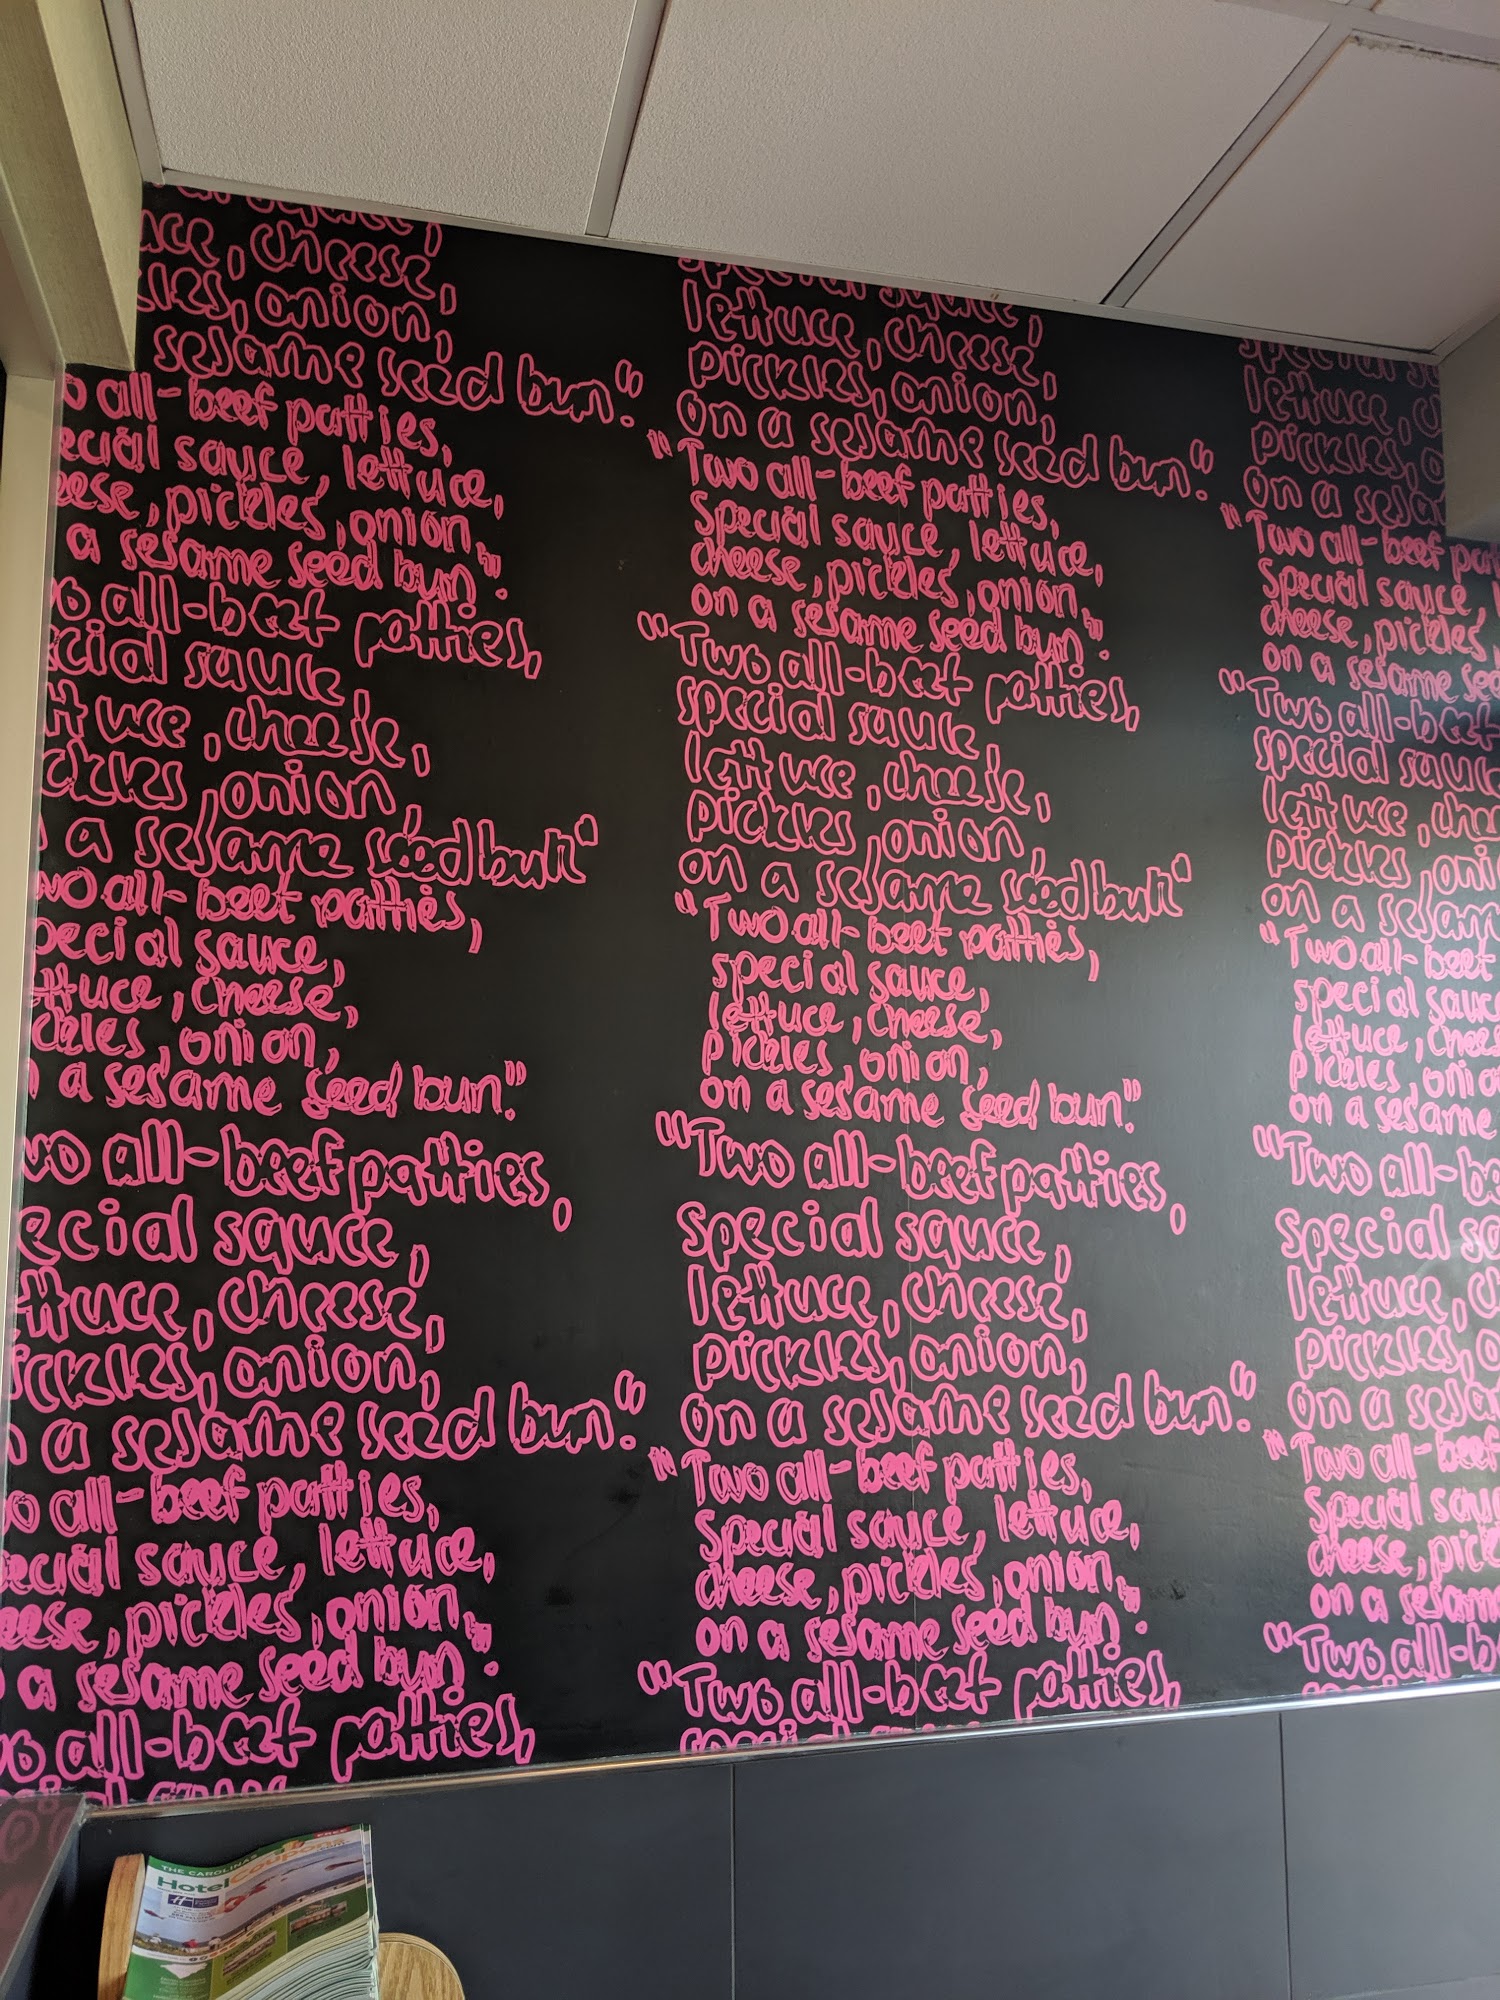 sauce,
uce, cheese,
kles, onion,
sesame seed bun."
o all-beef patties,
ecial sauce, lettuce,
eese, pickles, onion,
a sesame seed bun".
wo all-beef patties,
ecial sauce,
ttuce, cheese,
ickles, onion
n a sesame seed bun"
wo all-beef patties,
pecial sauce,
ettuce, cheese,
ickles, onion,
n a sesame seed bun."
wo all-beef patties,
ecial sauce,
ttuce, cheese,
ickles, onion,
n a sesame seed bun."
o all-beef patties,
ecial sauce, lettuce,
eese, pickles, onion,
a sesame seed bun".
wo all-beef patties,
special sauce,
lettuce, cheese,
pickles, onion,
on a sesame seed bun."
"Two all-beef patties,
special sauce, lettuce,
cheese, pickles, onion,
on a sesame seed bun".
"Two all-beef patties,
special sauce,
lettuce, cheese,
pickles, onion
on a sesame seed bun"
"Two all-beef patties,
special sauce,
lettuce, cheese,
pickles, onion,
on a sesame seed bun."
"Two all-beef patties,
special sauce,
lettuce, cheese,
pickles, onion,
on a sesame seed bun."
"Two all-beef patties,
special sauce, lettuce,
cheese, pickles, onion,
on a sesame seed bun".
"Two all-beef patties,
special sauce,
special s
lettuce, c
pickles, o
on a sesa
"Two all-beef pat
special sauce, l
cheese, pickles
on a sesame see
"Two all-beef
special sauc
lettuce, che
pickles, oni
on a sesam
"Two all-beef
special sauc
lettuce, chees
pickles, onio
on a sesame
"Two all-be
special sa
lettuce, c
pickles, o
on a sesa
"Two all-beef
special sauc
cheese, pick
on a sesam
"Two all-b
THE CAROLINAS
FREE
HotelCoupons